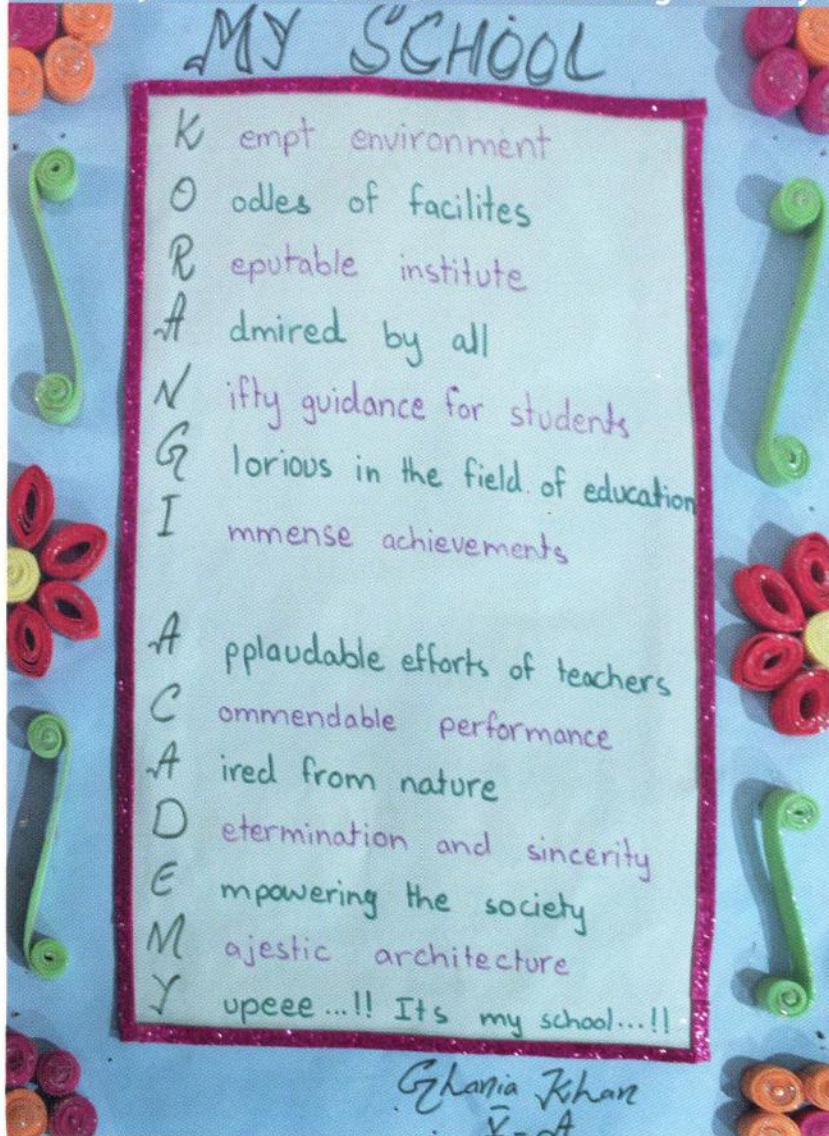 MY SCHOOL
K empt environment
O odles of facilites
R eputable institute
A dmired by all
N ifty guidance for students
G lorious in the field of education
I mmense achievements
A pplaudable efforts of teachers
C ommendable performance
A ired from nature
D etermination and sincerity
E mpowering the society
M ajestic architecture
Y upeee...!! Its my school...!!
Ghania Khan
V-A